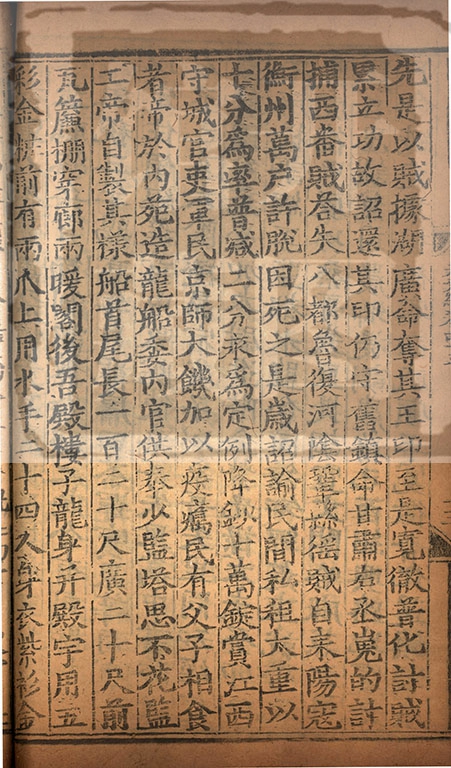 先是以賊據湖廣命奪其王印至是寬徹普化討賊
累立功故詔還其印仍守舊鎮命甘肅右丞嵬的討
捕西番賊答失八都魯復河陰鞏縣徭賊自耒陽寇
衡州萬户許脫因死之是歲詔諭民間私租太重以
十分爲率普减二分永爲定例降鈔十萬錠賞江西
守城官吏軍民京師大饑加以疫癘民有父子相食
者帝於内苑造龍船委内官供奉少監塔思不花監
工帝自製其樣船首尾長一百二十尺廣二十尺前
瓦簾棚穿廊兩暖閣後吾殿樓子龍身并殿宇用五
彩金粧前有兩爪上用水手二十四人身衣紫衫金